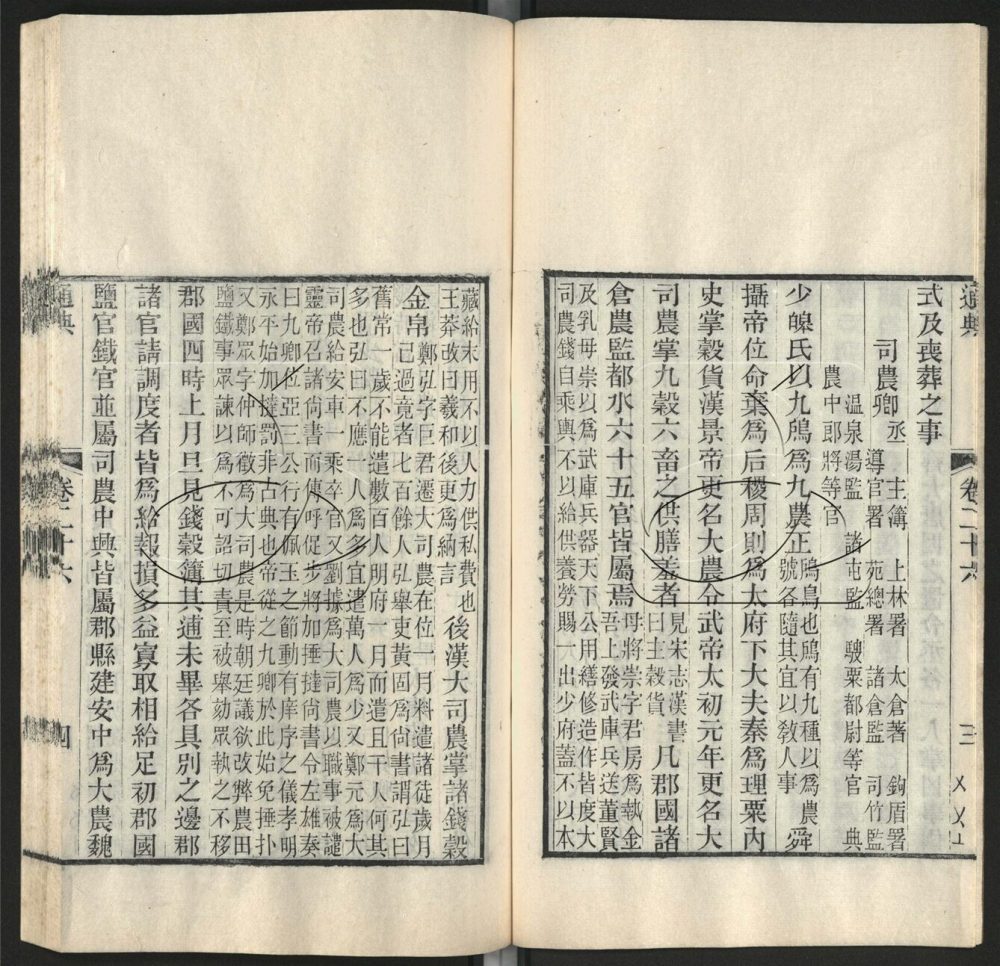 通典
卷二十六
三
式及喪葬之事
司農卿
丞 主簿 上林署 太倉署 鉤盾署
導官署 苑總署 諸倉監 司竹監
溫泉湯監 諸屯監 騪粟都尉等官 典
農中郎將等官
少皥氏以九鳸爲九農正
鳸鳥也鳸有九種以爲農
號各隨其宜以敎人事
舜
攝帝位命棄爲后稷周則爲太府下大夫秦爲理粟內
史掌穀貨漢景帝更名大農令武帝太初元年更名大
司農掌九穀六畜之供膳羞者
見宋志漢書
曰主穀貨
凡郡國諸
倉農監都水六十五官皆屬焉
毋將崇字君房爲執金
吾上發武庫兵送董賢
及乳母崇以爲武庫兵器天下公用繕修造作皆度大
司農錢自乘輿不以給供養勞賜一出少府蓋不以本
藏給末用不以人力供私費也
王莽改曰羲和後更爲納言
後漢大司農掌諸錢穀
金帛
鄭弘字巨君遷大司農在位一月料遣諸徒歲月
己過竟者七百餘人弘舉吏黃固爲尙書謂弘曰
舊常一歲不能遣數百人明府一月而遣且千人何其
多也弘曰不應一人爲多宜遣萬人爲少又鄭元爲大
司農給安車一乘卒官又劉據爲大司農以職事被譴
靈帝召諸尙書而傳呼促步將加捶撻尙書令左雄奏
曰九卿位亞三公行有佩玉之節動有庠序之儀孝明
永平始加撻罰非古典也帝從之九卿於此始免捶扑
又鄭眾字仲師徵爲大司農是時朝廷議欲改弊農田
鹽鐵事眾諫以爲不可詔切責至被舉劾眾執之不移
郡國四時上月旦見錢穀簿其逋未畢各具別之邊郡
諸官請調度者皆爲給報損多益寡取相給足初郡國
鹽官鐵官並屬司農中興皆屬郡縣建安中爲大農魏
通典
卷二十六
四